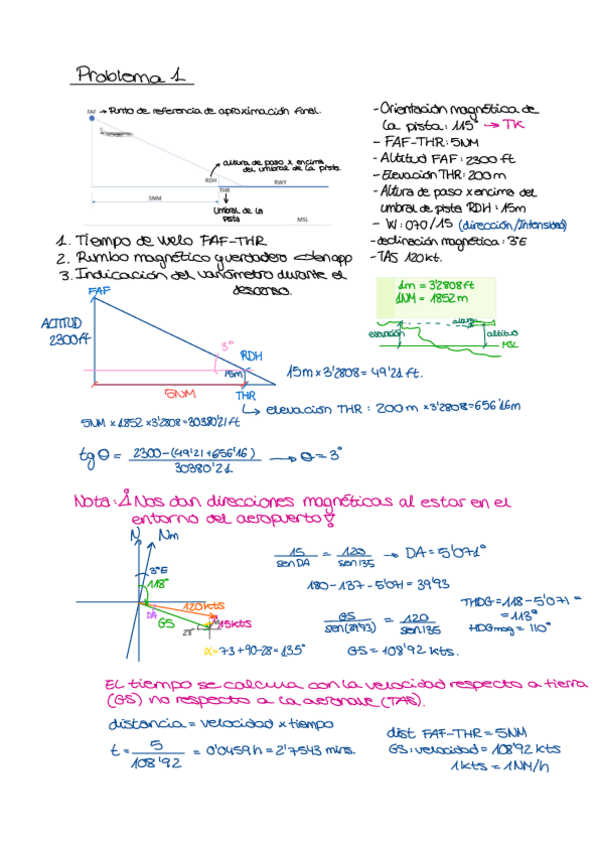 Problema 1
FAF → Punto de referencia de aproximación final.
altura de paso x encima
del umbral de la pista.
RDH
RWY
THR
5NM
Umbral de la
pista
MSL
- Orientación magnética de
la pista: 115° → TK
- FAF-THR: 5NM
- Altitud FAF: 2300 ft
- Elevación THR: 200 m
- Altura de paso x encima del
umbral de pista RDH: 15m
- W: 070/15 (dirección/Intensidad)
- declinación magnética: 3°E
- TAS 120kt.
1. Tiempo de vuelo FAF-THR
2. Rumbo magnético y verdadero
3. Indicación del variómetro durante el
descenso.
1m = 3'2808 ft
1NM = 1852 m
elevación
altura
altitud
MSL
FAF
ALTITUD
2300 ft
3°
RDH
15m
5NM
THR
15m x 3'2808 = 49'21 ft.
↳ elevación THR: 200 m x 3'2808 = 656'16m
5NM x 1852 x 3'2808 = 30380'21 ft
tg θ = 2300-(49'21+656'16) / 30380'21 → θ = 3°
Nota: ¡Nos dan direcciones magnéticas al estar en el
entorno del aeropuerto!
N Nm
3°E
118°
DA
GS
120kts
15kts
28°
α = 73+90-28 = 135°
15 / sen DA = 120 / sen 135 → DA = 5'071°
180 - 137 - 5'071 = 39'93
GS / sen(39'93) = 120 / sen 135
GS = 108'92 kts.
THDG = 118 - 5'071 =
= 113°
HDG mag = 110°
El tiempo se calcula con la velocidad respecto a tierra
(GS) no respecto a la aeronave (TAS).
distancia = velocidad x tiempo
t = 5 / 108'92 = 0'0459 h = 2'7543 mins.
dist FAF-THR = 5NM
GS: velocidad = 108'92 kts
1kts = 1NM/h